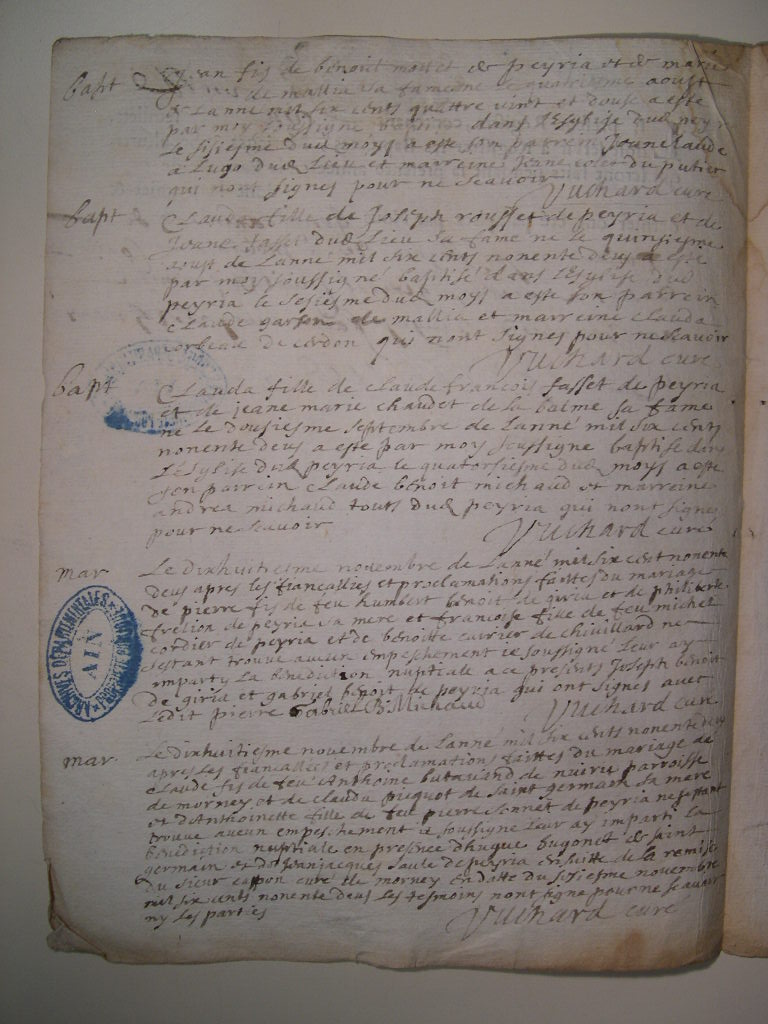 bapt Jean fis de benoit moret de peyria et de marie
de mallia sa fame ne le quatriesme aoust
de Lanne mil six cents quattre vint et douse a este
par moy soussigne baptise dans lEsglise dud peyria
le sisiesme dud moys a este son parrein
dud Lieu et marreine Jeane du putier
qui nont signes pour ne scavoir Vuichard cure
bapt Clauda fille de Joseph rousset de peyria et de
Jeane fasset dud Lieu sa fame ne le quinsiesme
aoust de Lanne mil six cents nonente deus a este
par moy soussigné baptisé dans lEsglise dud
peyria le sesiesme dud moys a este son parrein
Claude de mallia et marreine Clauda
de cerdon qui nont signes pour ne scavoir
Vuichard cure
bapt Clauda fille de claude francois fasset de peyria
et de jeane marie chaudet de la balme sa fame
ne le dousiesme septembre de Lanné mil six cents
nonente deus a este par moy soussigne baptise dans
lEsglise dud peyria le quatorsiesme dud moys a este
son parrein claude benoit michaud et marreine
andrea michaud touts dud peyria qui nont signes
pour ne scavoir Vuichard curé
mar Le dixhuitiesme novembre de Lanné mil six cent nonente
deus apres les fiancallies et proclamations faites du mariage
de pierre fis de feu humbert benoit de giria et de philiberte
frelion de peyria sa mere et francoise fille de feu michel
cordier de peyria et de benoitte cuvrier de chivillard ne
sestant trouve aucun empeschement ie soussigné leur ay
imparty La benediction nuptiale a ce presents Joseph benoit
de giria et gabriel benoit de peyria qui ont signes avec
Ledit pierre Gabriel B Michaud Vuichard cure
ARCHIVES DÉPARTEMENTALES
AIN
mar Le dixhuitiesme novembre de Lanné mil six cents nonente deus
apres Les fiancallies et proclamations faittes du mariage de
Claude fis de feu Anthoine de parroisse
de morney et de clauda picquot de saint germain sa mere
et dAnthoinette fille de feu pierre sonnet de peyria ne sestant
trouve aucun empeschement ie soussigne leur ay imparti La
benediction nuptiale en presence dhugue bugonet de saint
germain et de Jeanjacques saule de peyria ensuitte de la remise
du sieur cure de morney en datte du sesiesme novembre
mil six cents nonente deus les tesmoins nont signe pour ne scavoir
ny les parties Vuichard cure